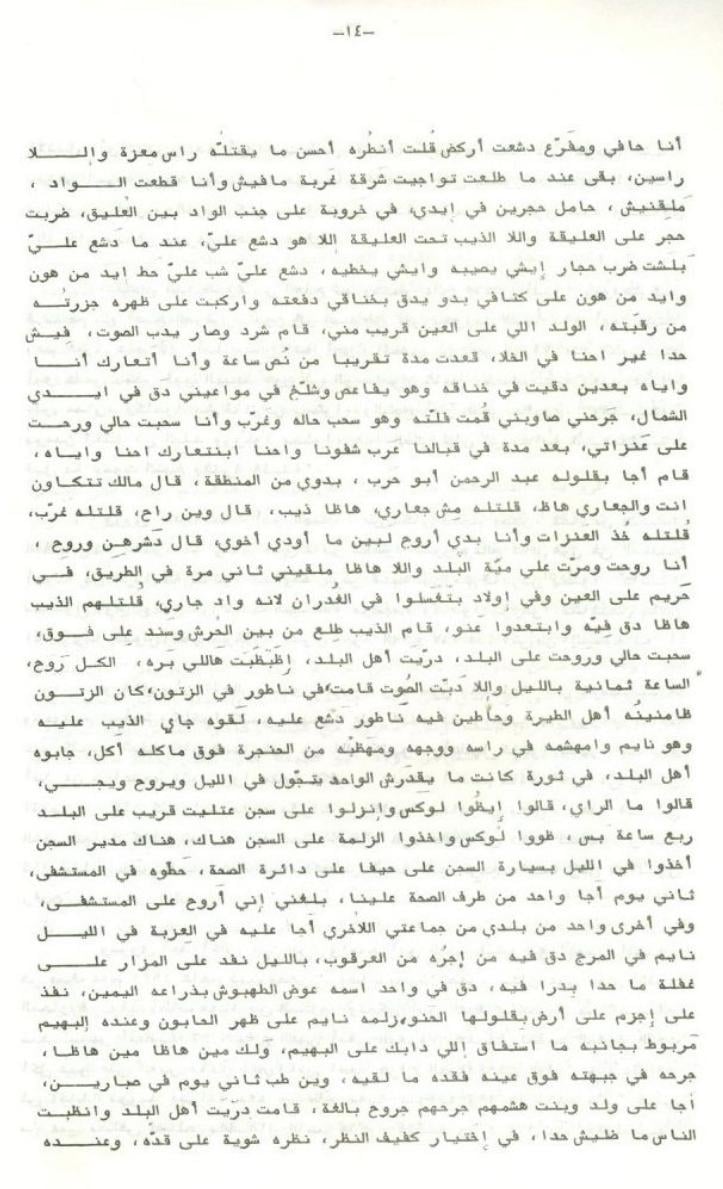 -١٤-
أنا حافي ومفَرّع دشعت أركض قُلت أنطُره أحسن ما يقتلّه راس معزة وإلـــلا
راسين، بقى عند ما طلعت تواجيت شرقة غربة مافيش وأنا قطعت الــواد ،
ملقنيش ، حامل حجرين في إيدي، في خروبة على جنب الواد بين العليق، ضربت
حجر على العليقة واللا الذيب تحت العليقة اللا هو دشع عليّ، عند ما دشع علــيّ
بلشت ضرب حجار إيشي يصيبه وايشي يخطيه، دشع عليّ شب عليّ حط ايد من هون
وايد من هون على كتافي بدو يدق بخناقي دفعته واركبت على ظهره جزرتــه
من رقبته، الولد اللي على العين قريب مني، قام شرد وصار يدب الصوت، فيـش
حدا غير احنا في الخلا، قعدت مدة تقريبا من نُص ساعة وأنا أتعارك أنــا
واياه بعدين دقيت في خناقه وهو يفاعص وشلّخ في مواعيني دق في ايــدي
الشمال، جَرحني صاوبني قُمت فلتّه وهو سحب حاله وغَرّب وأنا سحبت حالي ورحـت
على عَنزاتي، بعد مدة في قبالنا عَرب شفونا واحنا ابنتعارك احنا وايـاه،
قام أجا بقلوله عبد الرحمن أبو حرب ، بدوي من المنطقة، قال مالك تتكـاون
انت والجعاري هاظ، قلتله مِش جعاري، هاظا ذيب، قال وين راح، قلتله غرّب،
قُلتله خُذ العنزات وأنا بدي أروح لبين ما أودي أخوي، قال دَشرهـن وروح ،
أنا روحت ومرّت على ميّة البلد واللا هاظا ملقيني ثاني مرة في الطريق، فــي
حَريم على العين وفي إولاد بتغَسلوا في الغُدران لانه واد جاري، قُلتلهم الذيب
هاظا دق فيّه وابتعدوا عَنو، قام الذيب طلع من بين الحُرش وسَند على فــوق،
سحبت حالي وروحت على البلد، درّيت أهل البلد، إظَبظَبَت هاللي بَره، الكـل رَوح،
الساعة ثمانية بالليل واللا دَبّت الصُوت قامت، في ناطور في الزتون، كان الزتون
ظامنينُه أهل الطيرة وحَاطين فيه ناطور دَشع عليه، لقوه جاي الذيب عليـه
وهو نايم وامهشمه في راسه ووجهه ومهظبُه من الحنجرة فوق ماكله أكل، جابوه
أهل البلد، في ثورة كانت ما يقدرش الواحد يتجّول في الليل ويروح ويجــي،
قالوا ما الراي، قالوا إيظُوا لوكس وانزلوا على سجن عتليت قريب على البلـد
ربع ساعة بس، ظووا لُوكس واخذوا الزلمة على السجن هناك، هناك مدير السجن
أخذوا في الليل بسيارة السجن على حيفا على دائرة الصحة، حَطّوه في المستشفى،
ثاني يوم أجا واحد من طرف الصحة علينا، بلغني إني أروح على المستشفـى،
وفي أخرى واحد من بلدي من جماعتي اللاخري أجا عليه في العزبة في الليــل
نايم في المرج دق فيه من إجرُه من العرقوب، بالليل نفد على المزار علــى
غفلة ما حدا بدرا فيه، دق في واحد اسمه عوض الطهبوش بذراعه اليمين، نفذ
على إجزم على أرض بقلولها الحنو، زلمه نايم على ظهر الحابون وعنده إلبهيم
مَربوط بجانبه ما استفاق إللي دابك على البهيم، وَلك مين هاظا مين هاظـا،
جرحه في جبهته فوق عينه فقده ما لقيه، وين طب ثاني يوم في صباريــن،
أجا على ولد وبنت هشمهم جرحهم جروح بالغة، قامت درّيت أهل البلد وانظبت
الناس ما ظليش حدا، في إختيار كفيف النظر، نظره شوية على قدّه، وعنــده